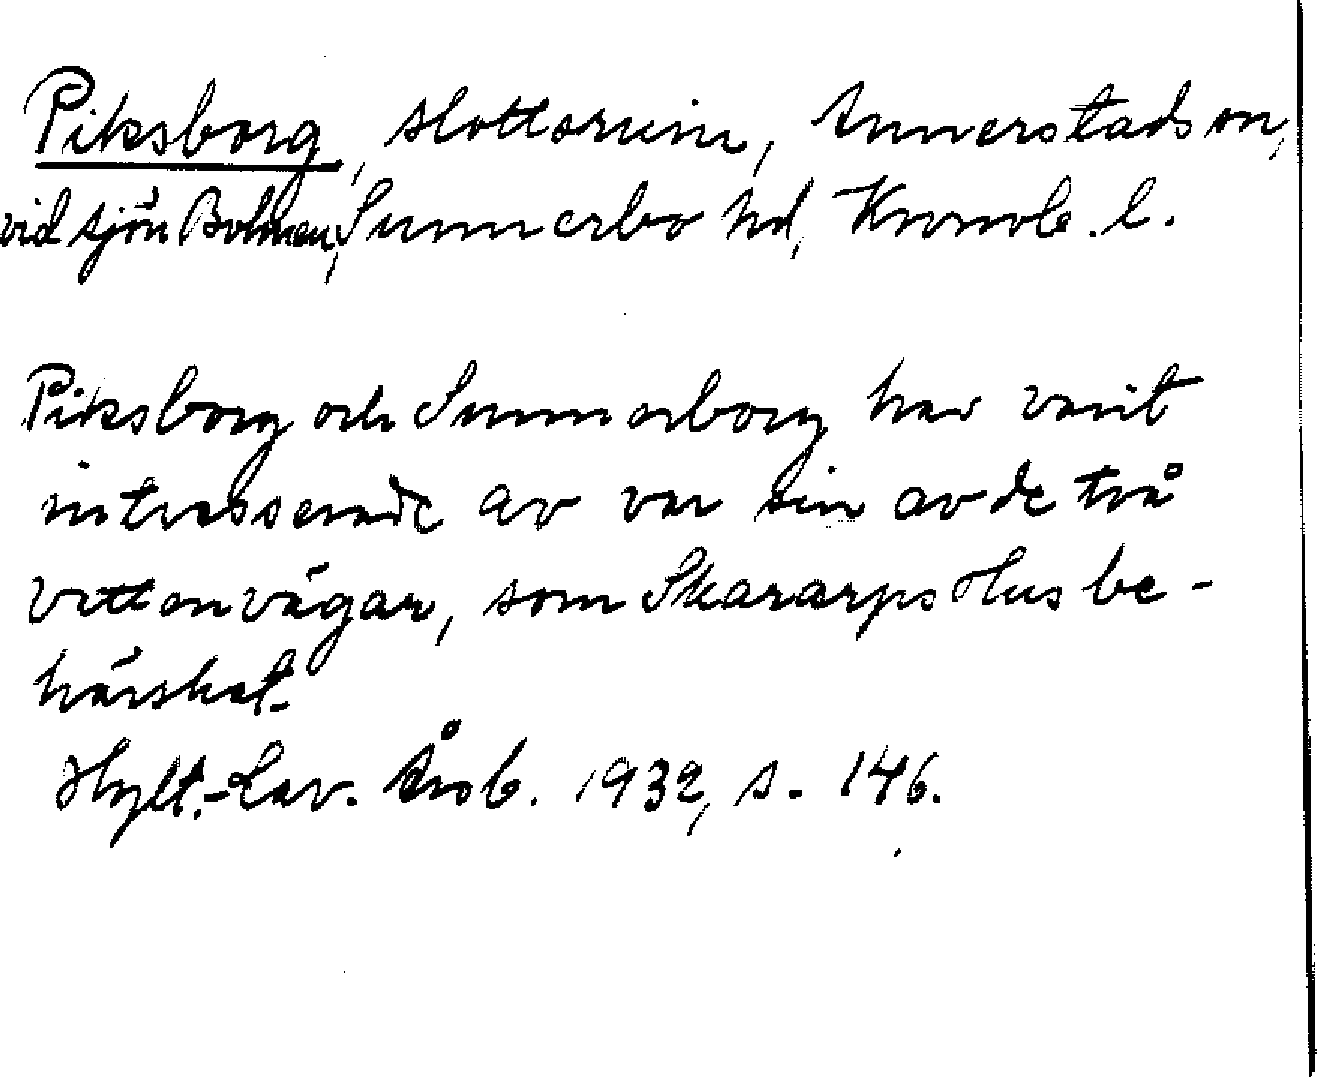 Piksborg, slottsruin, Annerstads sn,
vid sjön Bolmen, Sunnerbo hd, Kronob. l.
Piksborg och Sunnerborg har varit
intresserade av var sin av de två
vattenvägar, som Skararps Hus be-
härskat.
Hylt.-Cav. Årsb. 1932, s. 146.